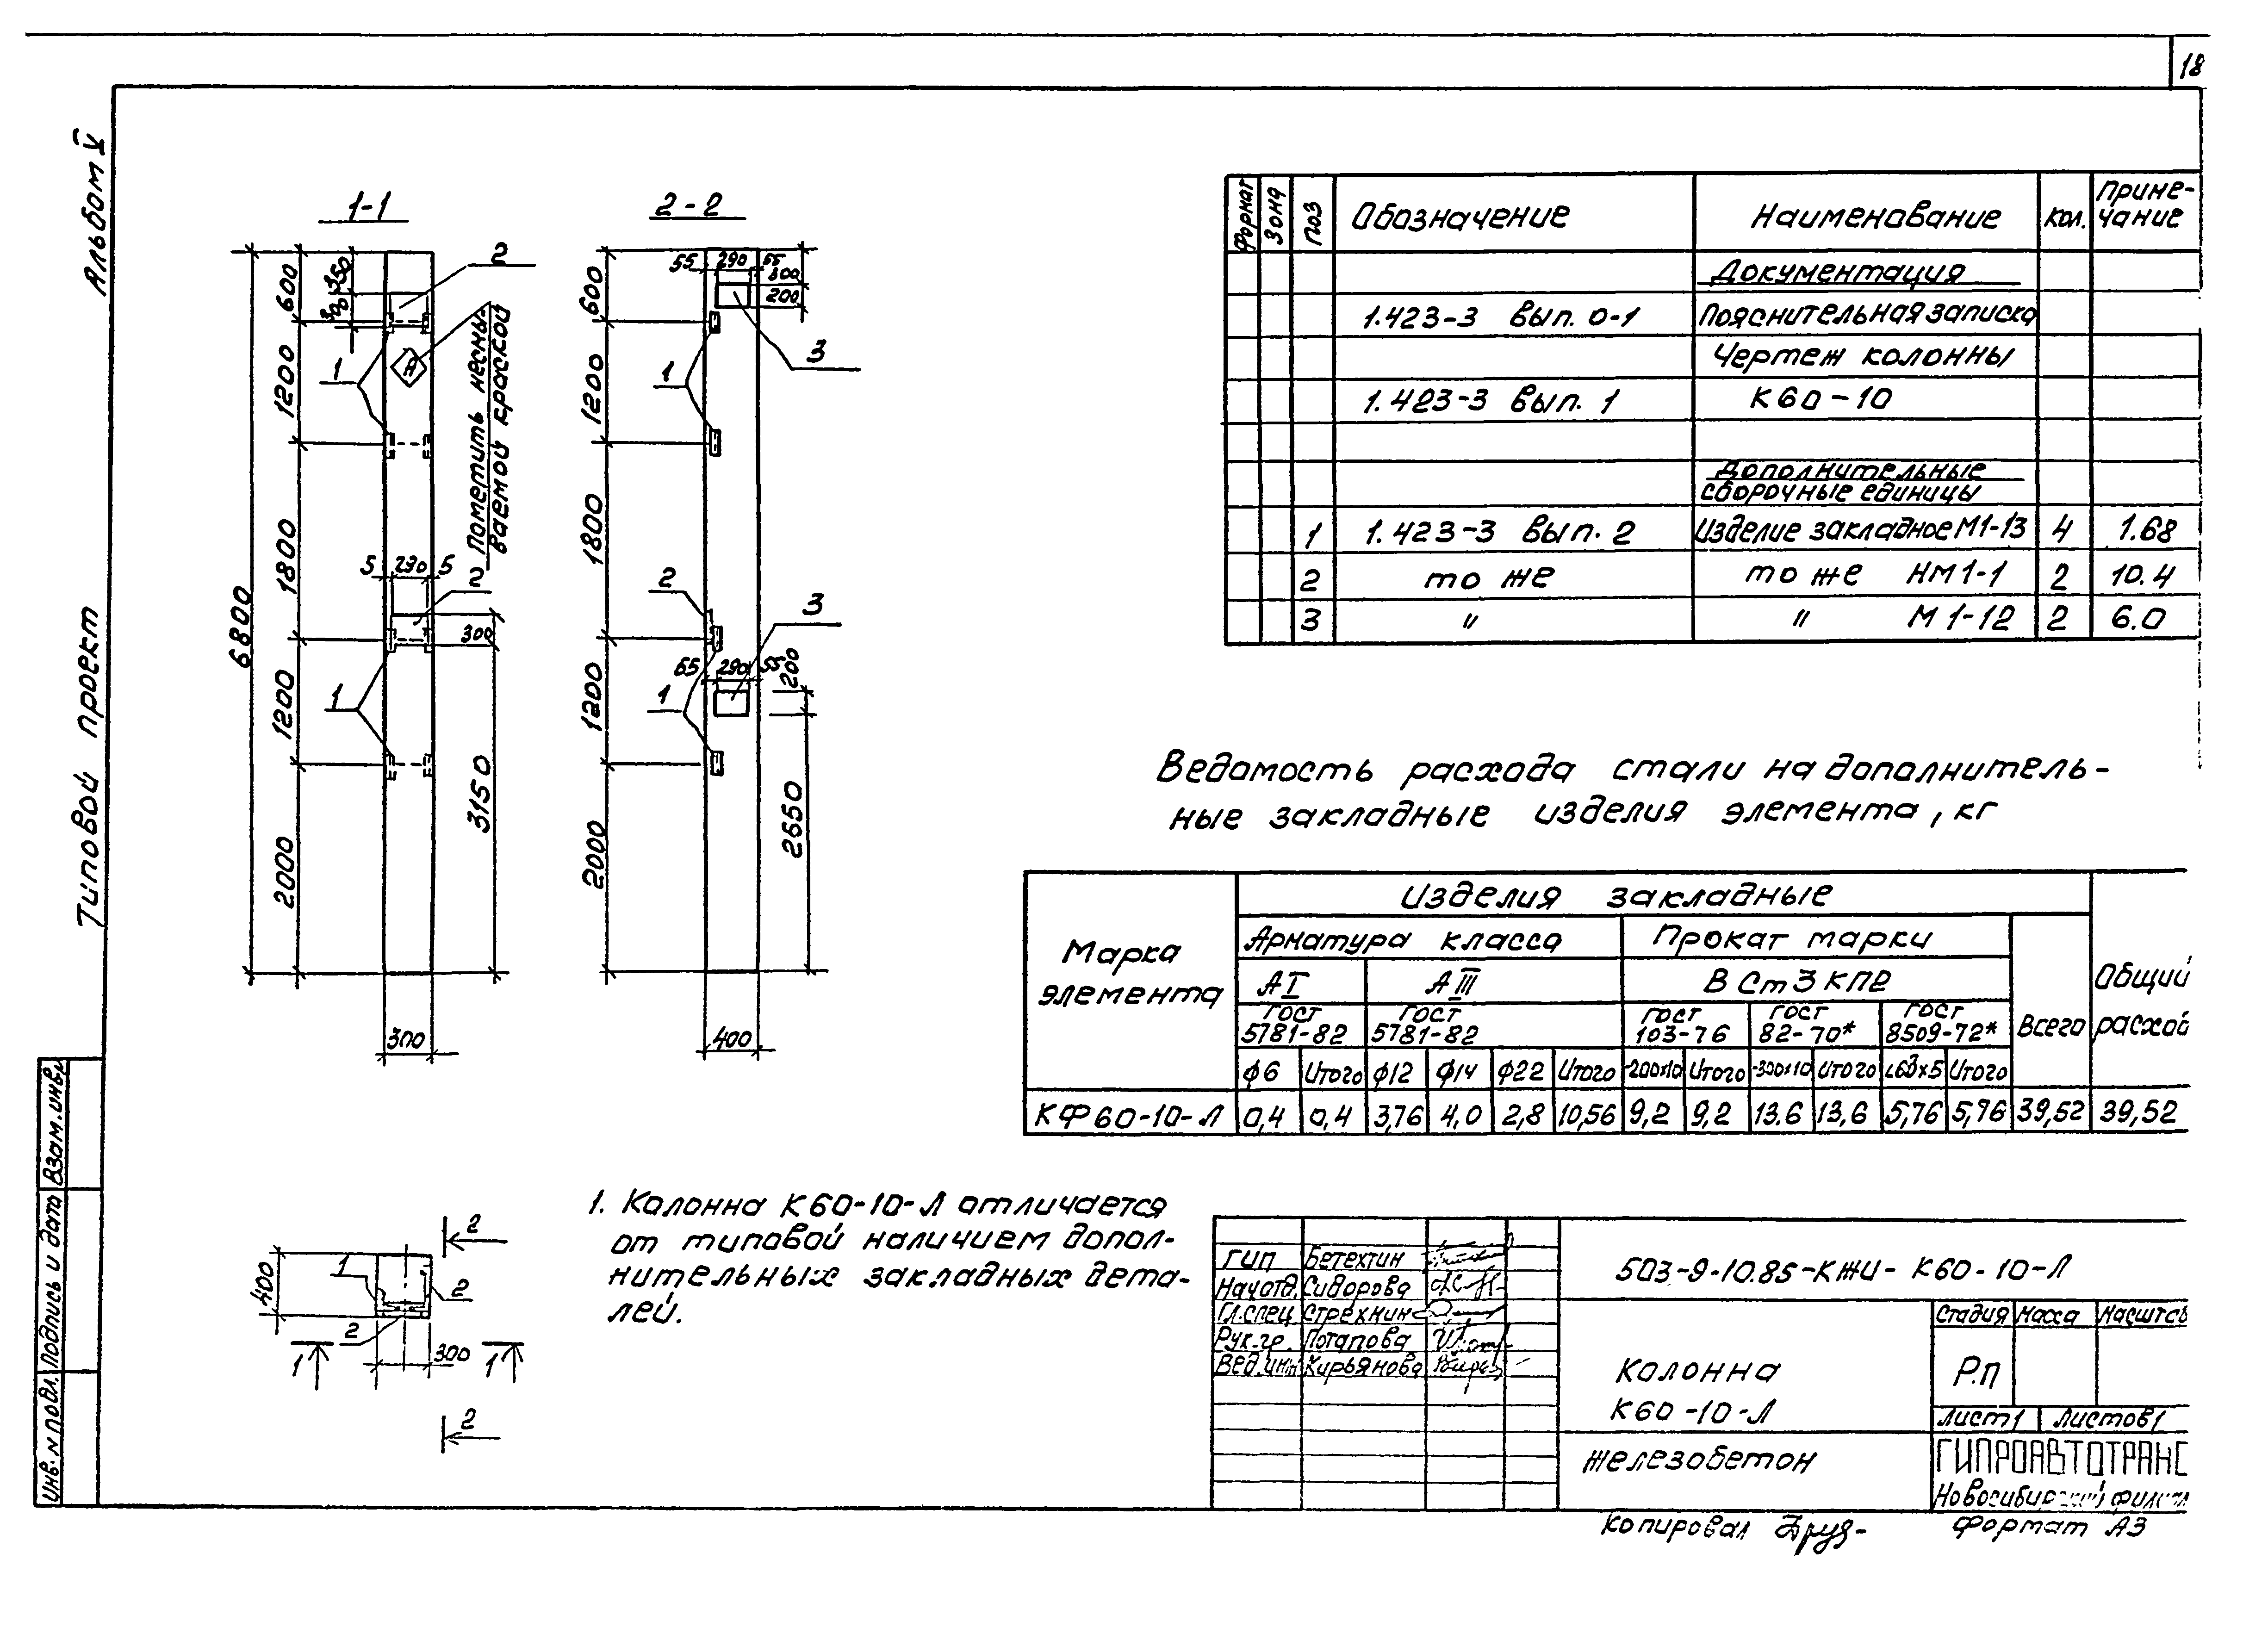 18
Альбом V
Типовой проект
1-1
2-2
2
600
350
300
1
1200
А
Пометить несмы-
ваемой краской
1800
5 290 5
2
300
6800
1
1200
3150
2000
300
600
55 290 55
300
200
3
1
1200
1800
2
3
65 290 55
200
1
1200
2650
2000
400
Формат Зона Поз Обозначение Наименование Кол. Приме-
чание
Документация
1.423-3 вып. 0-1 Пояснительная записка
Чертеж колонны
1.423-3 вып. 1 К60-10
Дополнительные
сборочные единицы
1 1.423-3 вып. 2 Изделие закладное М1-13 4 1.68
2 то же то же НМ1-1 2 10.4
3 " " М1-12 2 6.0
Ведомость расхода стали на дополнитель-
ные закладные изделия элемента, кг
Марка
элемента
Изделия закладные
Арматура класса Прокат марки
А I А III В Ст 3 КП2
ГОСТ 5781-82 ГОСТ 5781-82 ГОСТ 103-76 ГОСТ 82-70* ГОСТ 8509-72* Всего Общий расход
ф6 Итого ф12 ф14 ф22 Итого -200х10 Итого -300х10 Итого L63х5 Итого
КФ60-10-Л 0,4 0,4 3,76 4,0 2,8 10,56 9,2 9,2 13.6 13,6 5,76 5,76 39,52 39,52
1. Колонна К60-10-Л отличается
от типовой наличием допол-
нительных закладных дета-
лей.
2
400
1
2
2
1
300
1
2
ГИП Бетехтин
Нач.отд. Сидорова
Гл.спец Стрехнин
Рук.гр. Потапова
Вед.инж Кирьянова
503-9-10.85-КЖИ-К60-10-Л
Колонна
К60-10-Л
Стадия Масса Масштаб
Р.п
Лист 1 Листов 1
железобетон
ГИПРОАВТОТРАНС
Новосибирский филиал
Инв. N подл. Подпись и дата Взам.инв.
Копировал
Формат А3